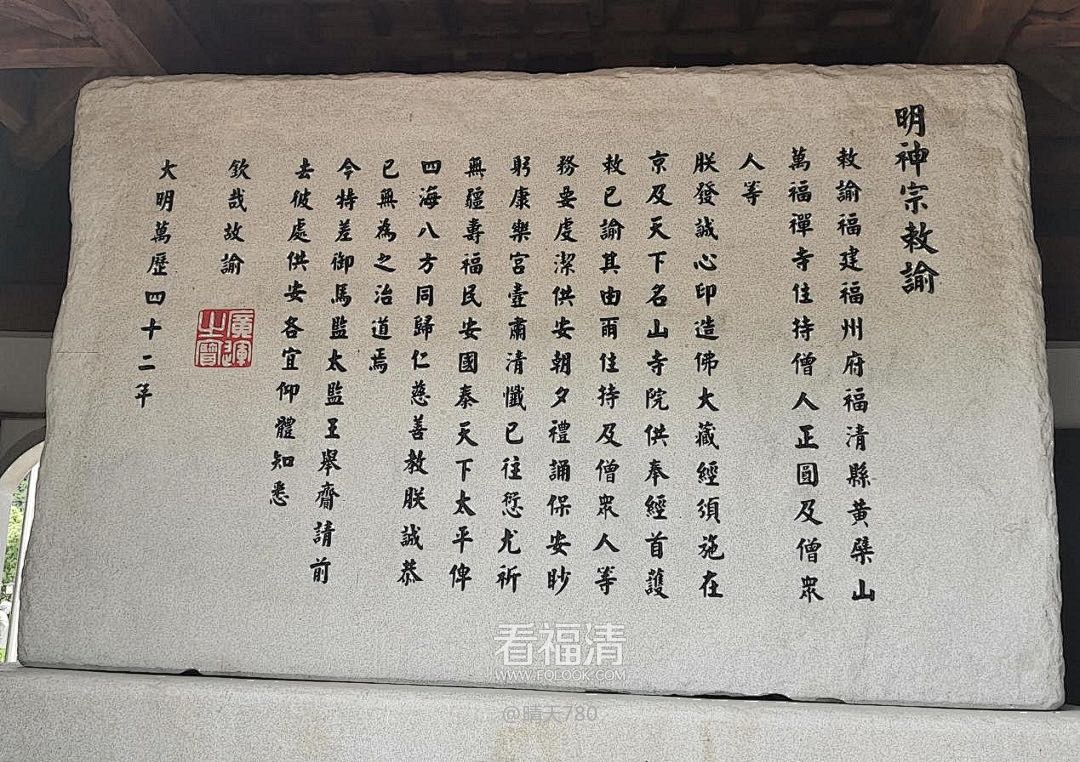 明神宗敕諭
敕諭福建福州府福清縣黃檗山
萬福禪寺住持僧人正圓及僧眾
人等
朕發誠心印造佛大藏經須施在
京及天下名山寺院供奉經首護
敕已諭其由爾住持及僧眾人等
務要虔潔供安朝夕禮誦保安眇
躬康樂宮壼肅清懺已往愆尤祈
無疆壽福民安國泰天下太平俾
四海八方同歸仁慈善教朕誠恭
已無為之治道焉
今特差御馬監太監王舉齎請前
去彼處供安各宜仰體知悉
欽哉故諭
廣運之寶
大明萬曆四十二年
看福清
WWW.FQLOOK.COM
@晴天780